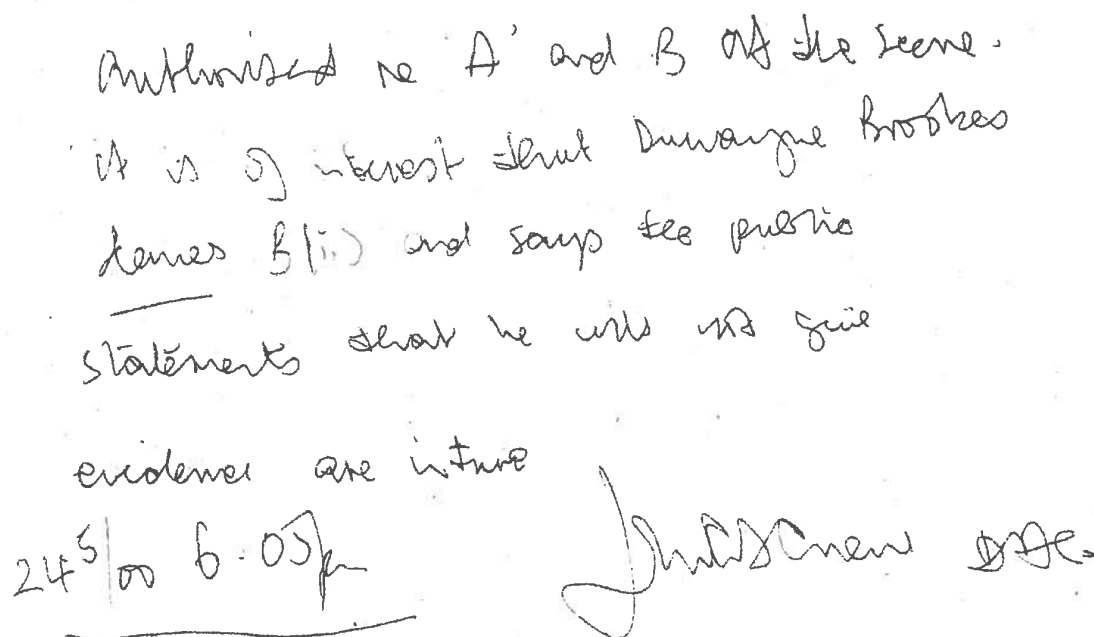 Authorised re A' and B at the scene.
it is of interest that Duwayne Brookes
denies B(i) and says the public
statements that he will not give
evidence are untrue
24 5/00 6.05pm DAC.